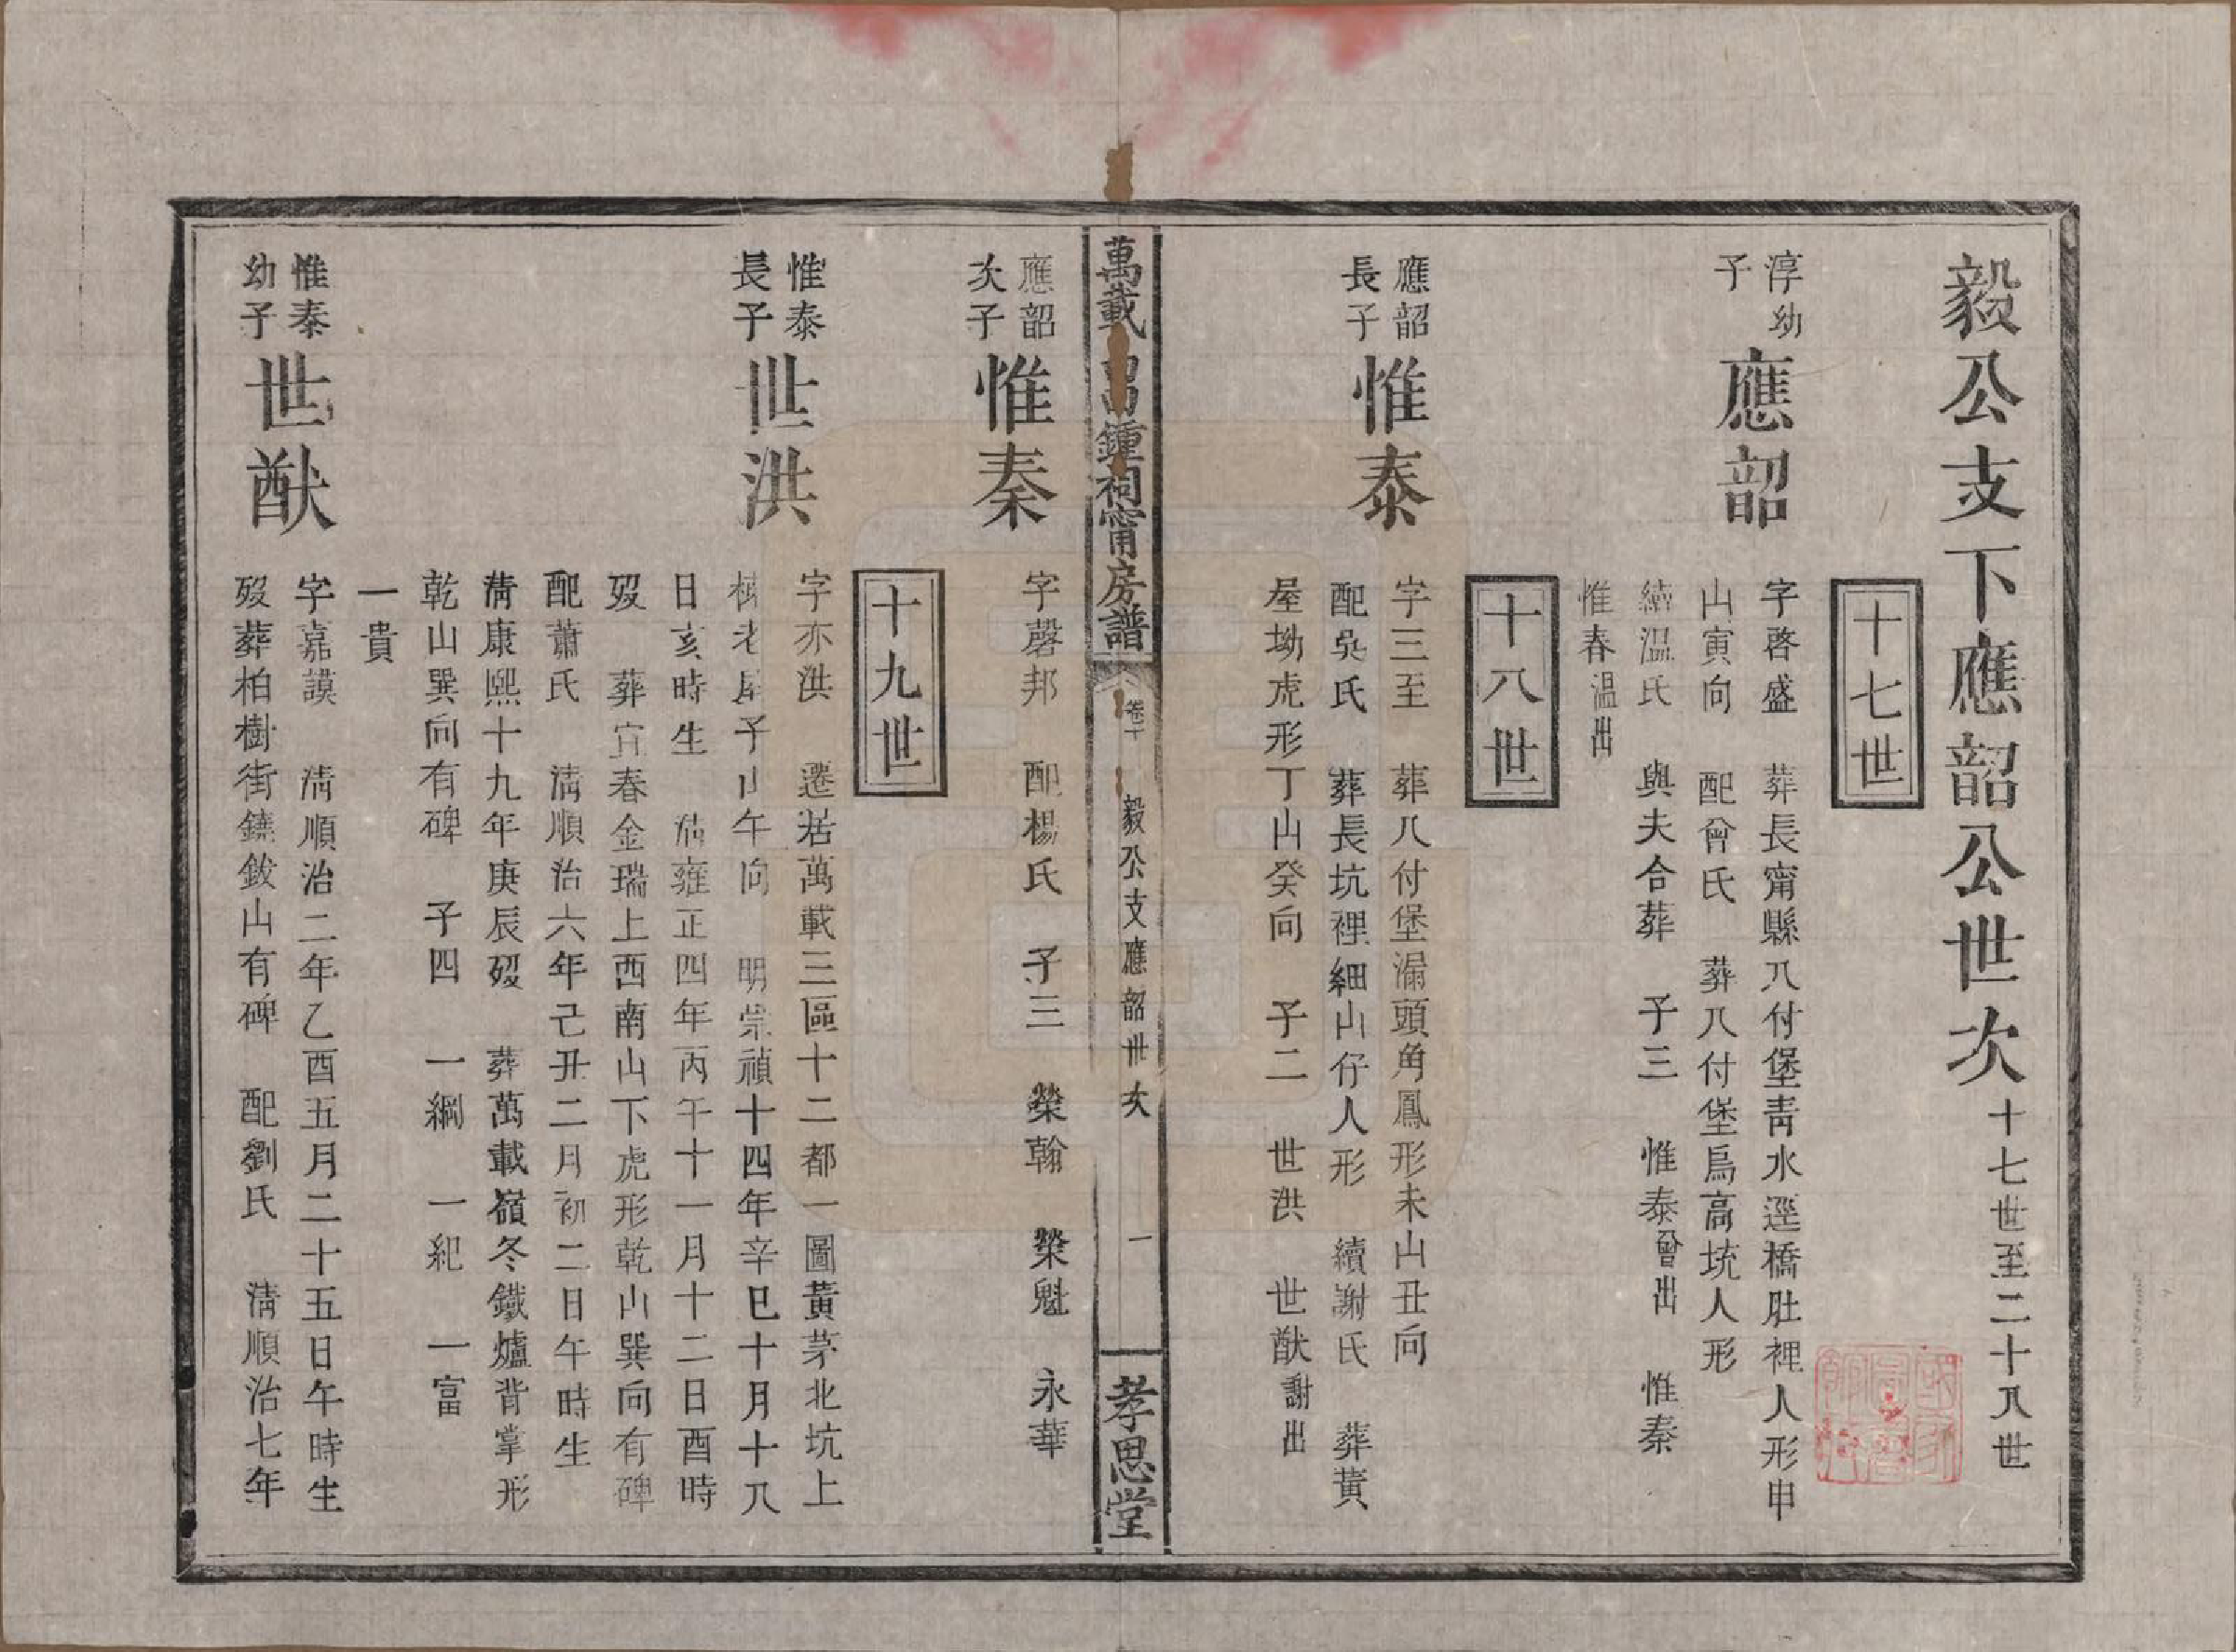 毅公支下應韶公世次 十七世至二十八世
十七世
淳幼子 應韶
字啓盛 葬長甯縣八付堡靑水逕橋肚裡人形申
山寅向 配曾氏 葬八付堡烏高坑人形
續溫氏 與夫合葬 子三 惟泰曾出 惟秦
惟春溫出
十八世
應韶長子 惟泰
字三至 葬八付堡漏頭角鳳形未山丑向
配吳氏 葬長坑裡細山仔人形 續謝氏 葬黃
屋坳虎形丁山癸向 子二 世洪 世猷謝出
萬載 鍾祠甯房譜
毅公支應韶世次 一
孝思堂
應韶次子 惟秦
字磬邦 配楊氏 子三 榮翰 榮魁 永華
十九世
惟泰長子 世洪
字亦洪 遷居萬載三區十二都一圖黃茅北坑上
老屋子山午向 明崇禎十四年辛巳十月十八
日亥時生 淸雍正四年丙午十一月十二日酉時
歿 葬宜春金瑞上西南山下虎形乾山巽向有碑
配蕭氏 淸順治六年己丑二月初二日午時生
淸康熙十九年庚辰歿 葬萬載嶺冬鐵爐背掌形
乾山巽向有碑 子四 一綱 一紀 一富
一貴
惟泰幼子 世猷
字嘉謨 淸順治二年乙酉五月二十五日午時生
歿葬柏樹街鐃鈸山有碑 配劉氏 淸順治七年